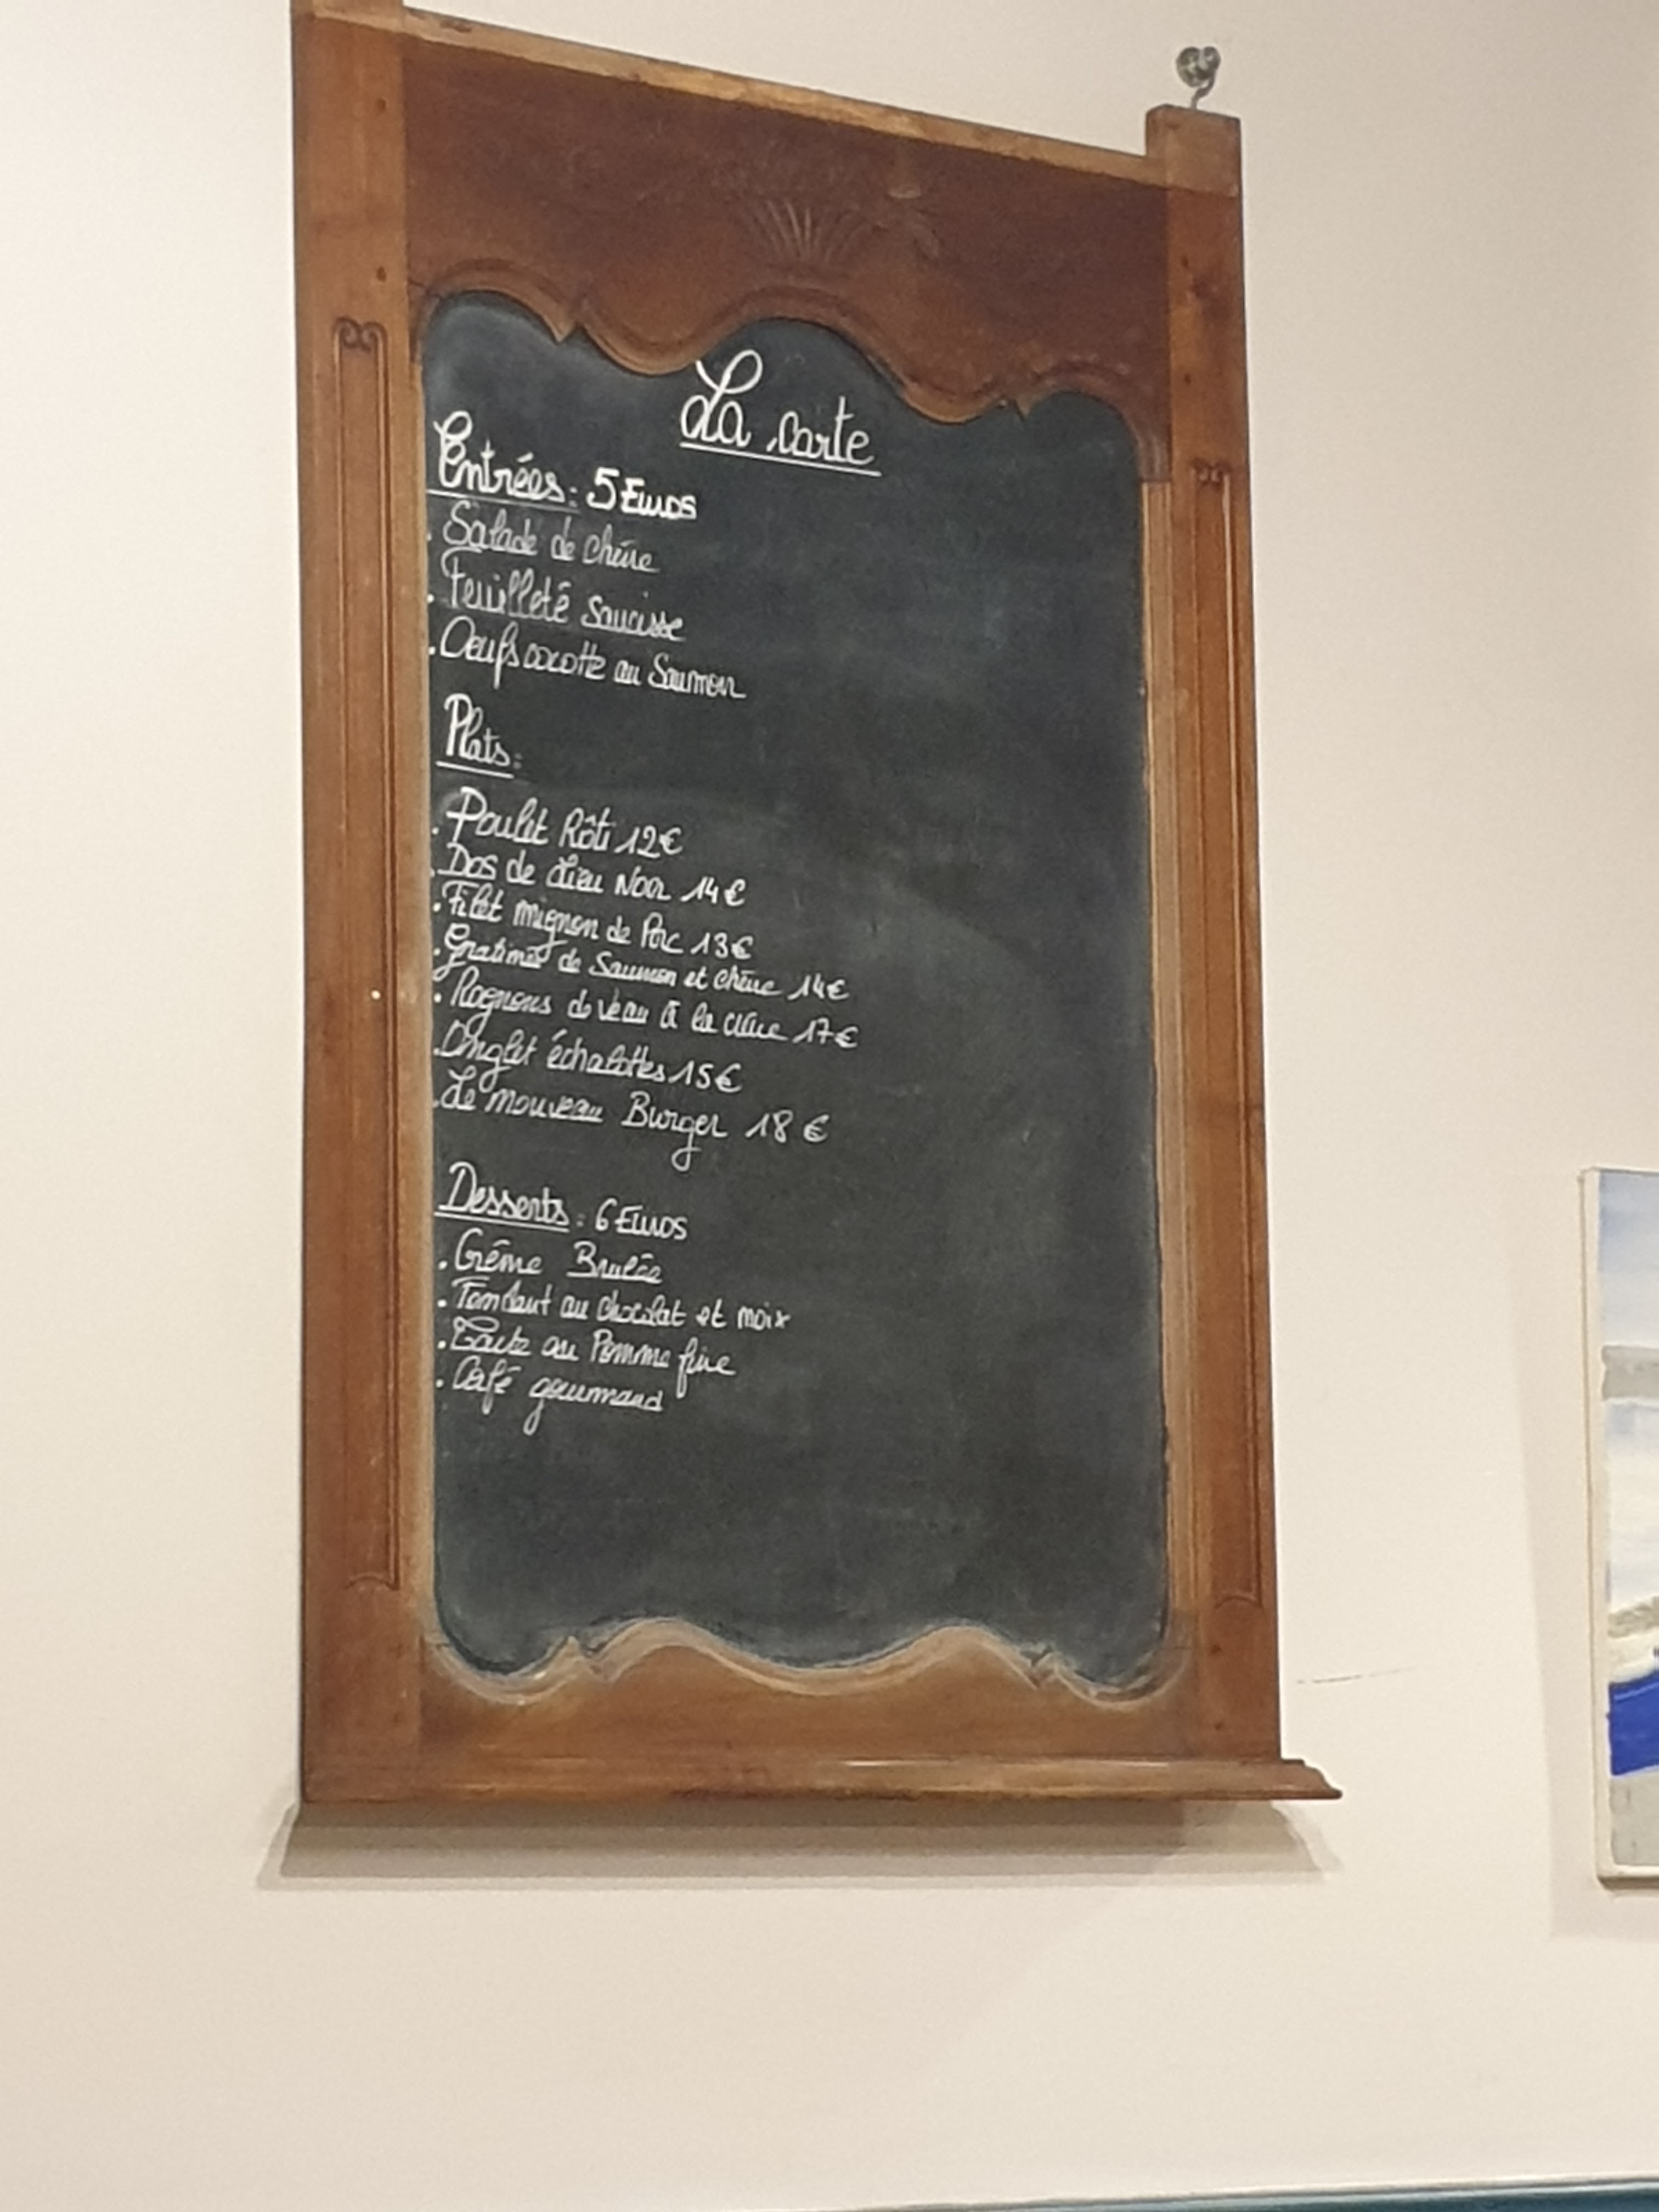 La carte
Entrées : 5 Euros
. Salade de chèvre
. Feuilleté Saucisse
. Oeufs cocotte au Saumon
Plats :
. Poulet Rôti 12€
. Dos de Lieu Noir 14€
. Filet mignon de Porc 13€
. Gratiné de Saumon et chèvre 14€
. Rognons de veau à la crème 17€
. Onglet échalottes 15€
. Le nouveau Burger 18€
Desserts : 6 Euros
. Crème Brulée
. Fondant au chocolat et noix
. Tarte au Pomme fine
. Café gourmand